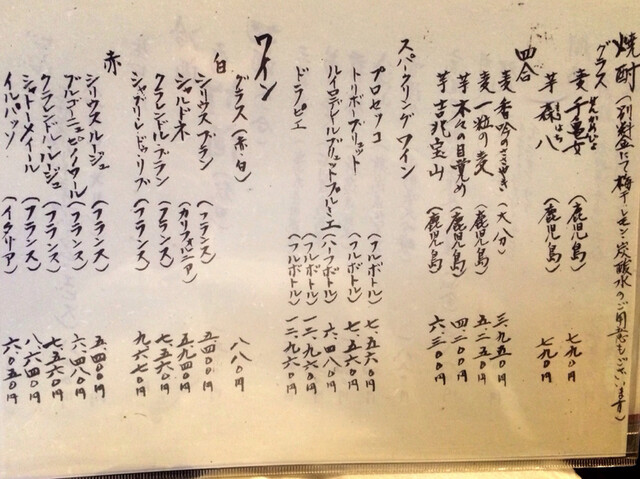 焼酎(別料金にて梅干・レモン・炭酸水のご用意もございます)
グラス
麦 千亀女 (鹿児島) 七九〇円
せんがめじょ
芋 蔵八 (鹿児島) 七九〇円
四合
麦 香吟のささやき (大分) 三、九五〇円
麦 一粒の麦 (鹿児島) 五、二五〇円
芋 木々の目覚め (鹿児島) 四、二〇〇円
芋 吉兆宝山 (鹿児島) 六、三〇〇円
スパークリングワイン
プロセッコ (フルボトル) 七、五六〇円
トリボーブリュット (フルボトル) 七、五六〇円
ルイロデレールブリュットプルミエ (ハーフボトル) 六、四八〇円
(フルボトル) 一二、九六〇円
ドラピエ (フルボトル) 一二、九六〇円
ワイン
グラス(赤・白) 八八〇円
白
シリウスブラン (フランス) 五、四〇〇円
シャルドネ (カリフォルニア) 五、九四〇円
クラレンドル・ブラン (フランス) 七、五六〇円
シャブリ・レ・ドゥ・リブ (フランス) 九、六七〇円
赤
シリウスルージュ (フランス) 五、四〇〇円
ブルゴーニュピノノワール (フランス) 六、四八〇円
クラレンドル・ルージュ (フランス) 七、五六〇円
シャトーメイール (フランス) 八、六四〇円
イルパッソ (イタリア) 六、〇五〇円